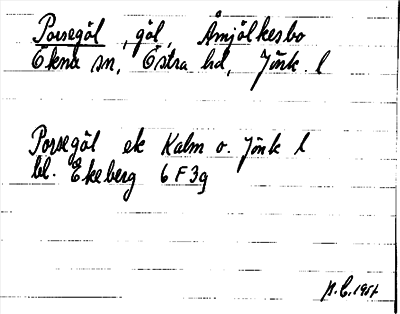 Porsegöl, göl, Åmjölkesbo
Ekna sn, Östra hd, Jönk. l
Porsegöl ek Kalm o. Jönk l
bl. Ekeberg 6 F 3g